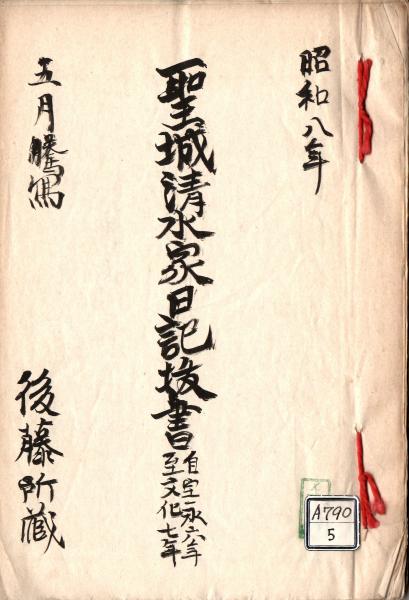 昭和八年
聖城清水家日記抜書
自宝永六年
至文化七年
五月謄写
後藤所蔵
A790
5